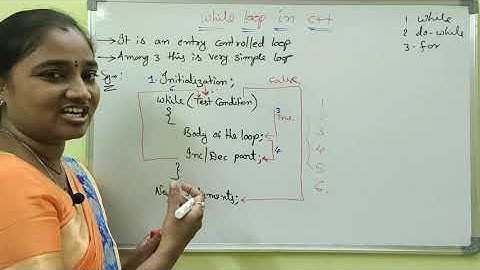 while loop in c++
1 while
2 do-while
3. for
→ It is an entry controlled loop
→ Among 3 this is very simple loop
Eg:
1. Initialization;
false
while (Test Condition)
{
3 true
Body of the loop;
Inc/Dec part;
4.
}
1
2
3
4
5
6